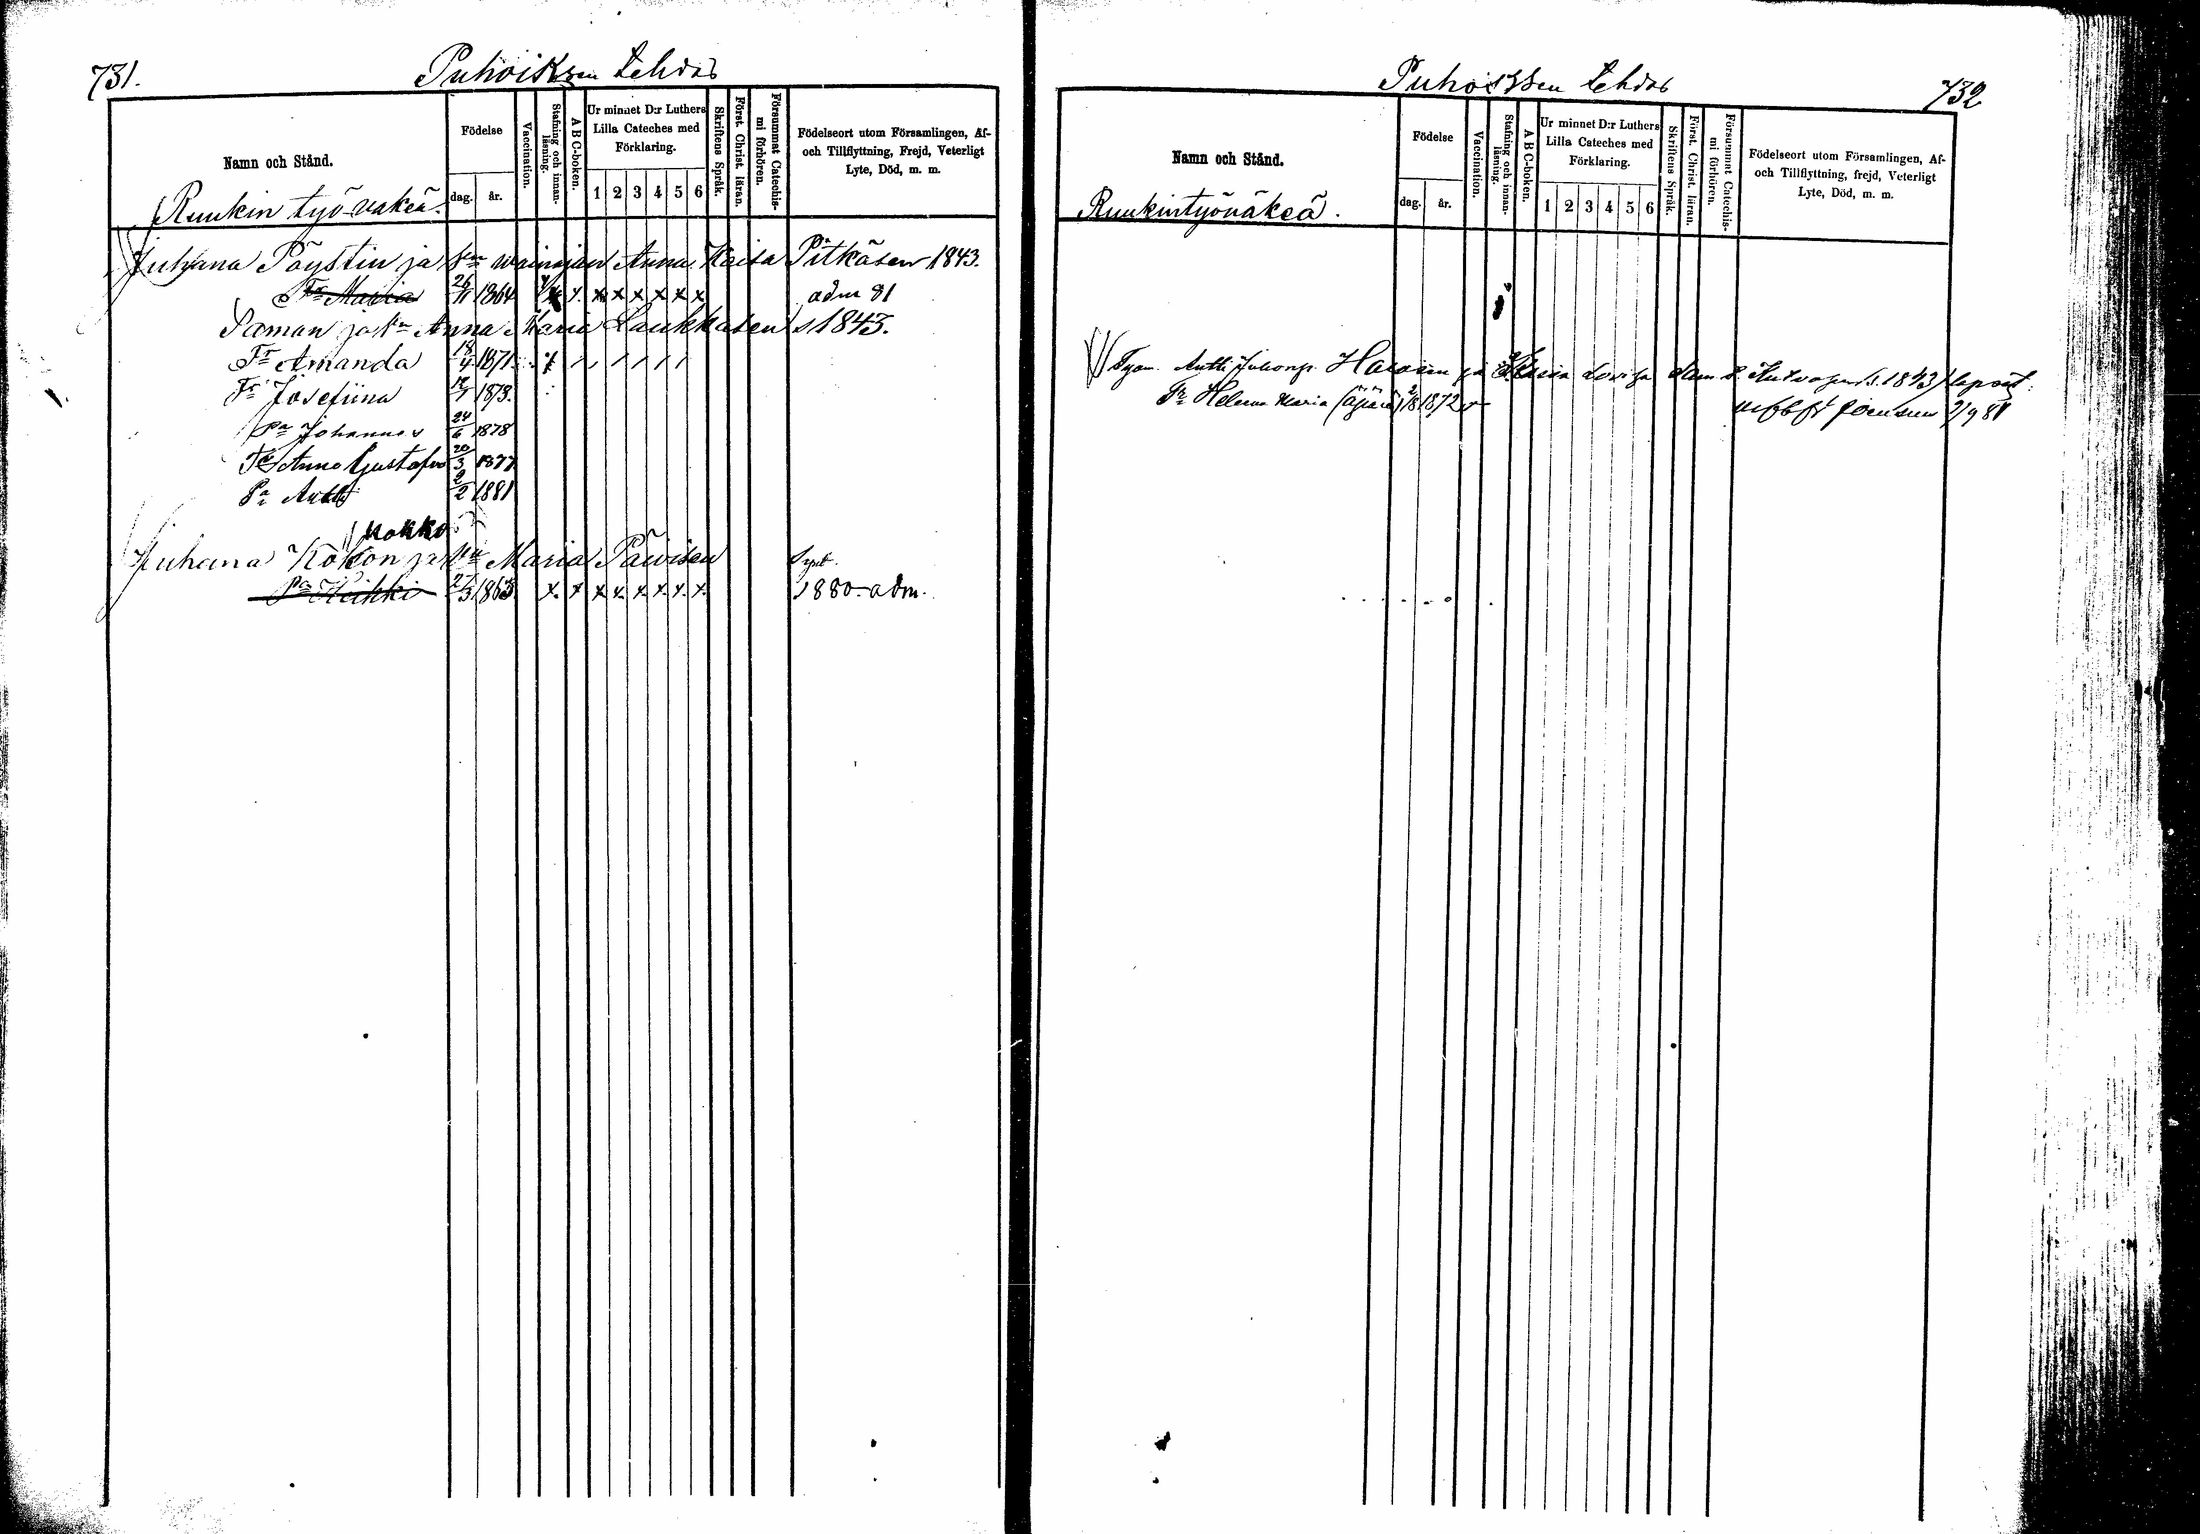 731.
Puhoiksen tehdas
Namn och Stånd.
Födelse
dag.
år.
Vaccination.
Stafning och innanläsning.
A B C-boken.
Ur minnet D:r Luthers Lilla Cateches med Förklaring.
1 2 3 4 5 6
Skriftens Språk.
Först. Christ. läran.
Försummat Catechismi förhören.
Födelseort utom Församlingen, Af- och Tillflyttning, Frejd, Veterligt Lyte, Död, m. m.
Ruukin työväkeä.
Juhana Pöystin ja sen vainajan Anna Kaisa Pitkäsen 1843.
Tr Maria 26/11 1864 x x x x x x x adm 81
Saman ja sn Anna Maria Laukkasen s 1843.
Tr Amanda 18/4 1871
Tr Josefiina 1873.
Pa Johannes 24/6 1878
Tr Anna Gustafva 20/3 1877
Pa Antti 2/2 1881
Kokko
Juhana Kokon ja sn Maria Päivisen
Pa Heikki 27/3 1863 x x x x x x x x 1880 adm.
Puhoiksen tehdas
732
Namn och Stånd.
Födelse
dag.
år.
Vaccination.
Stafning och innanläsning.
A B C-boken.
Ur minnet D:r Luthers Lilla Cateches med Förklaring.
1 2 3 4 5 6
Skriftens Språk.
Först. Christ. läran.
Försummat Catechismi förhören.
Födelseort utom Församlingen, Af- och Tillflyttning, frejd, Veterligt Lyte, Död, m. m.
Ruukintyöväkeä.
Antti Juhonp. Harosen ja Maria Lovisa 1843) lapset:
Tr Helena Maria (Äpärä) 1872 Joensuu 9/9 81